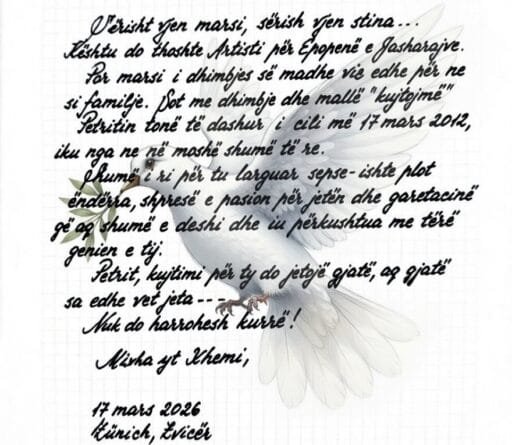 Sërisht vjen marsi, sërish vjen stina...
Kështu do thoshte Artisti për Epopenë e Jasharajve.
Por marsi i dhimbjes së madhe vie edhe për ne
si familje. Sot me dhimbje dhe mallë "kujtojmë"
Petritin tonë të dashur i cili më 17 mars 2012,
iku nga ne në moshë shumë të re.
Shumë i ri për tu larguar sepse-ishte plot
ëndërra, shpresë e pasion për jetën dhe garetacinë
gë aq shumë e deshi dhe iu përkushtua me tërë
genien e tij.
Petrit, kujtimi për ty do jetojë gjatë, aq gjatë
sa edhe vet jeta---
Nuk do harrohesh kurrë!
Mixha yt Xhemi,
17 mars 2026
Zürich, Zvicër